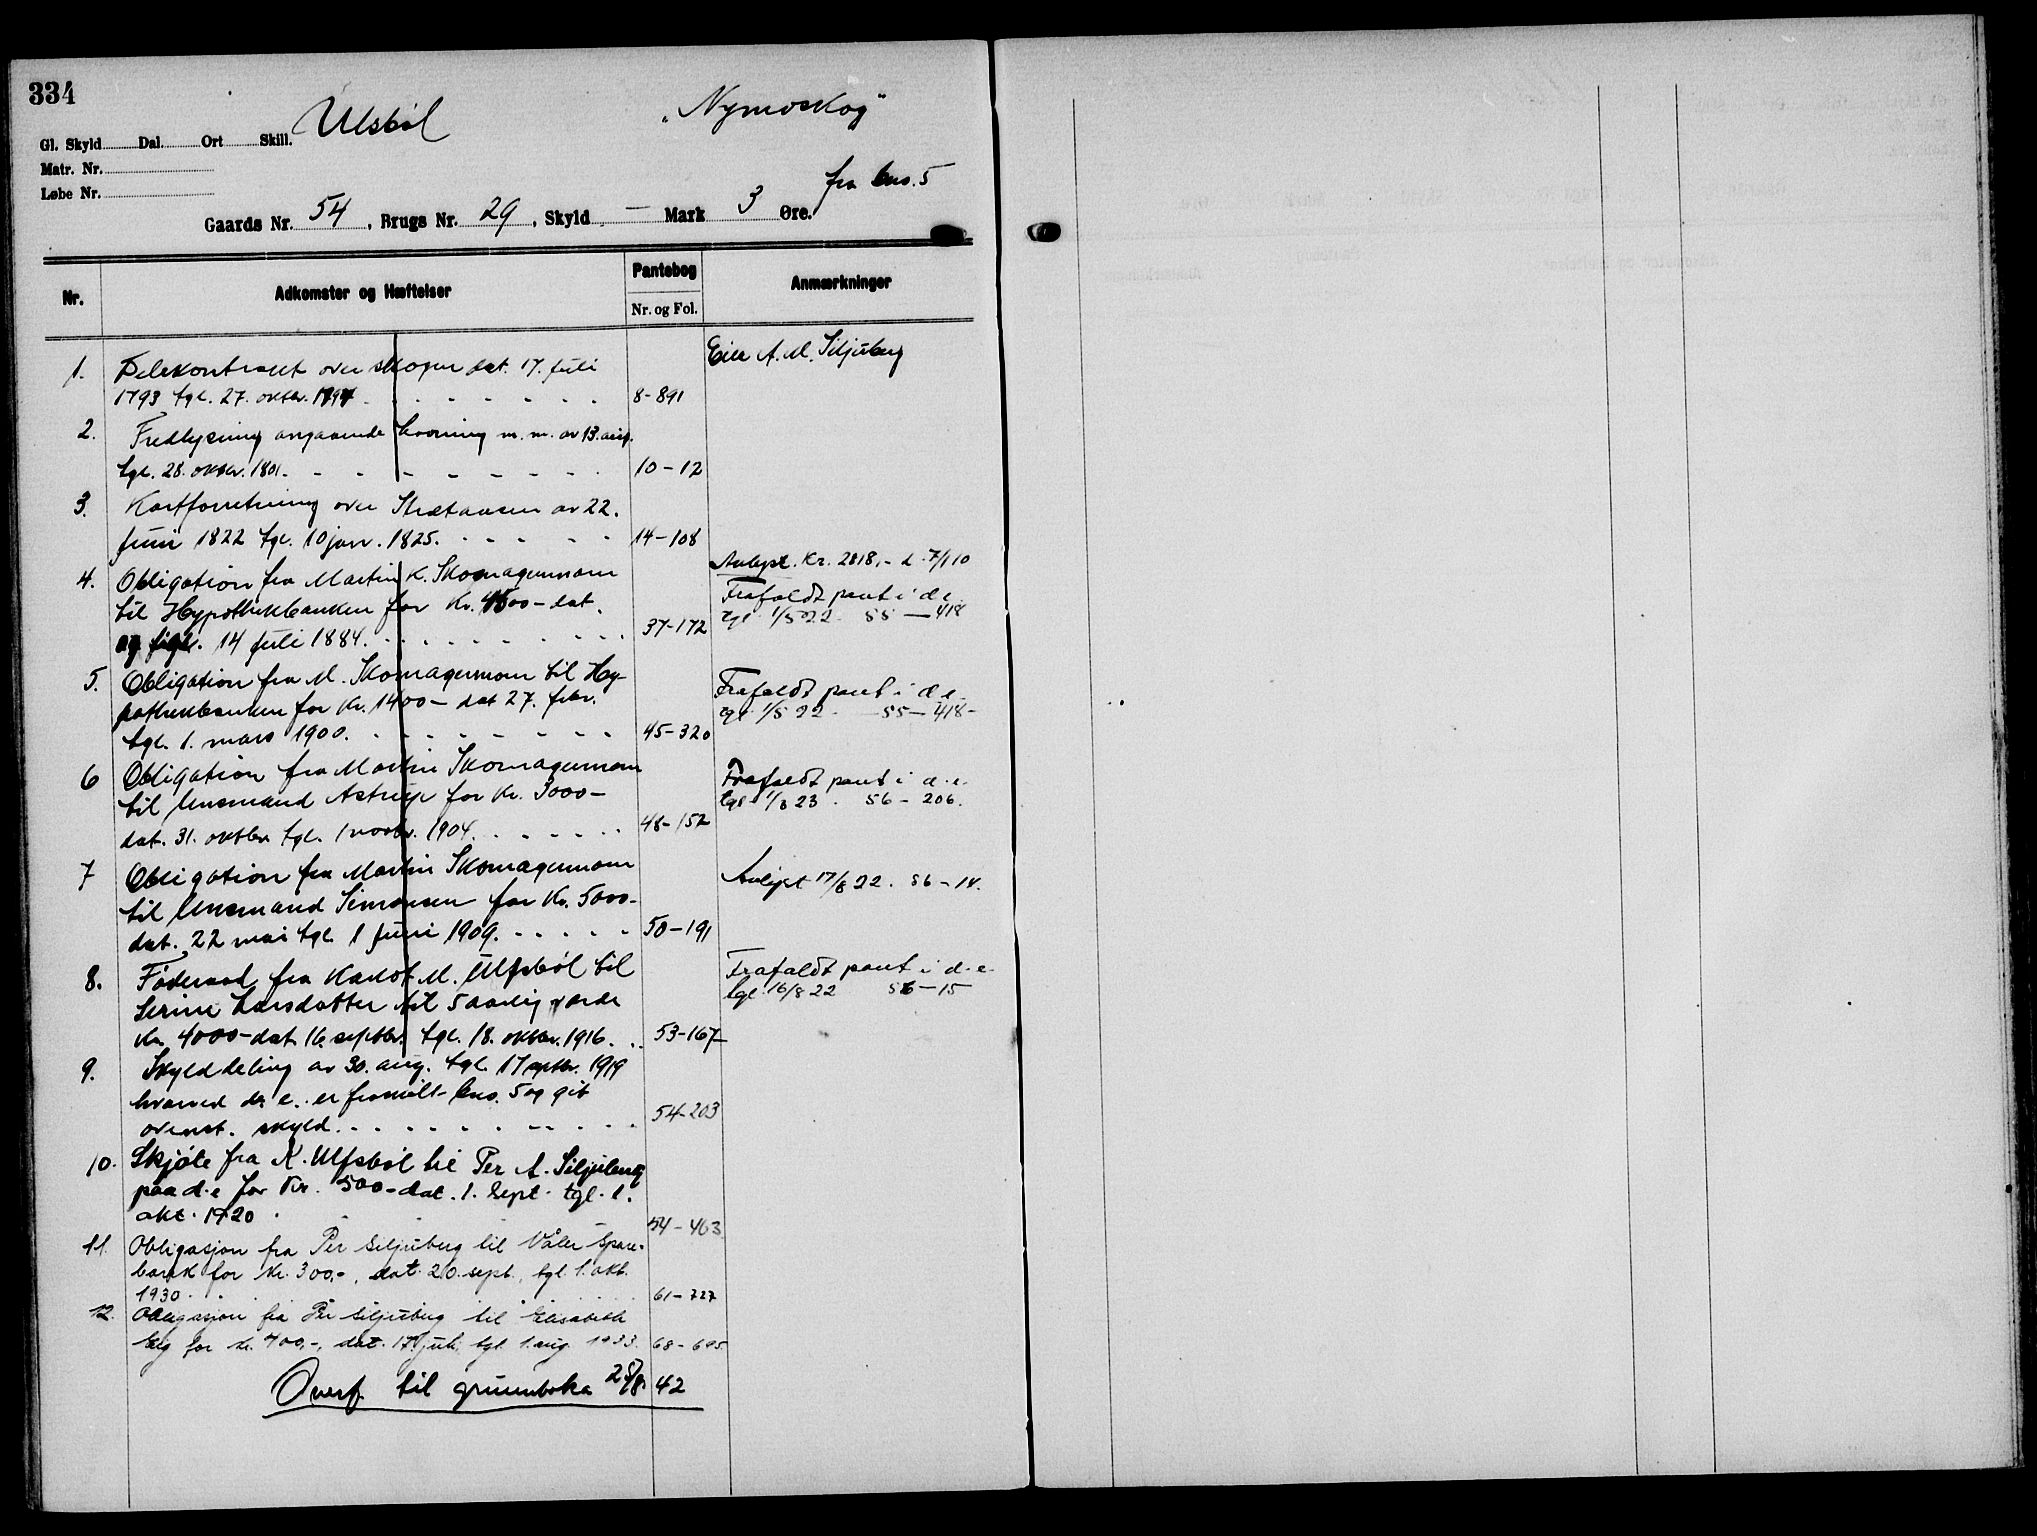 334
Ulsbøl „Nymoskog"
Gl. Skyld Dal Ort Skill.
Matr. Nr.
Løbe Nr.
fra bno. 5
Gaards Nr. 54, Brugs Nr. 29, Skyld — Mark 3 Øre.
Nr. Adkomster og Hæftelser Pantebog Anmærkninger
Nr. og Fol.
Eier A. M. Siljuberg
1. Delekontrakt over skogen dat. 17. juli
1793 tgl. 27. oktbr. 1794 8-891
2. Fredlysning angaaende havning m. m. av 13. aug.
tgl. 28. oktbr. 1801. 10-12
3. Kartforretning over Skræthaasen av 22.
juni 1822 tgl. 10 jan. 1825. 14-108
4. Obligation fra Martin K. Skomagermoen Avlyst. Kr. 2818,- d. 7/1 10
til Hypothekbanken for Kr. 4500- dat. Frafaldt pant i d e.
og tgl. 14 juli 1884. 37-172 tgl. 1/5 22. 55-418
5. Obligation fra M. Skomagermoen til Hy-
pothekbanken for Kr. 1400- dat 27. febr. Frafaldt pant i d e.
tgl. 1. mars 1900. 45-320 tgl. 1/5 22. 55-418-
6 Obligation fra Martin Skomagermoen
til Unsmand Astrup for Kr. 3000- Frafaldt pant i d. e.
dat. 31. oktbr. tgl. 1 novbr. 1904. 48-152 tgl 1/8 23. 56-206.
7 Obligation fra Martin Skomagermoen
til Unsmand Simonsen for Kr. 5000- Avlyst 17/8 22. 56-14.
dat. 22 mai tgl. 1 juni 1909. 50-191
8. Føderaad fra Karl M. Ulfsbøl til Frafaldt pant i d. e.
Serine Larsdatter til 5 aarlig værde tgl. 16/8 22 56-15
Kr. 4000- dat. 16 septbr. tgl. 18. oktbr. 1916. 53-167
9. Skylddeling av 30. aug. tgl. 17 septbr. 1919
hvorved d. e. er fraskilt bno. 5 og git
ovenst. skyld. 54-203
10. Skjøte fra K. Ulfsbøl til Per A. Siljuberg
paa d. e for Kr. 500- dat. 1. sept. tgl. 1.
okt. 1920 54-463
11. Obligasjon fra Per Siljuberg til Våler Spare-
bank for kr. 300,-, dat. 20. sept., tgl. 1. okt.
1930. 61-727
12. Obligasjon fra Per Siljuberg til Elisabeth
for kr. 400,-, dat. 17. juli, tgl. 1. aug. 1933. 68-695
Overf. til grunnboka 25/8 42